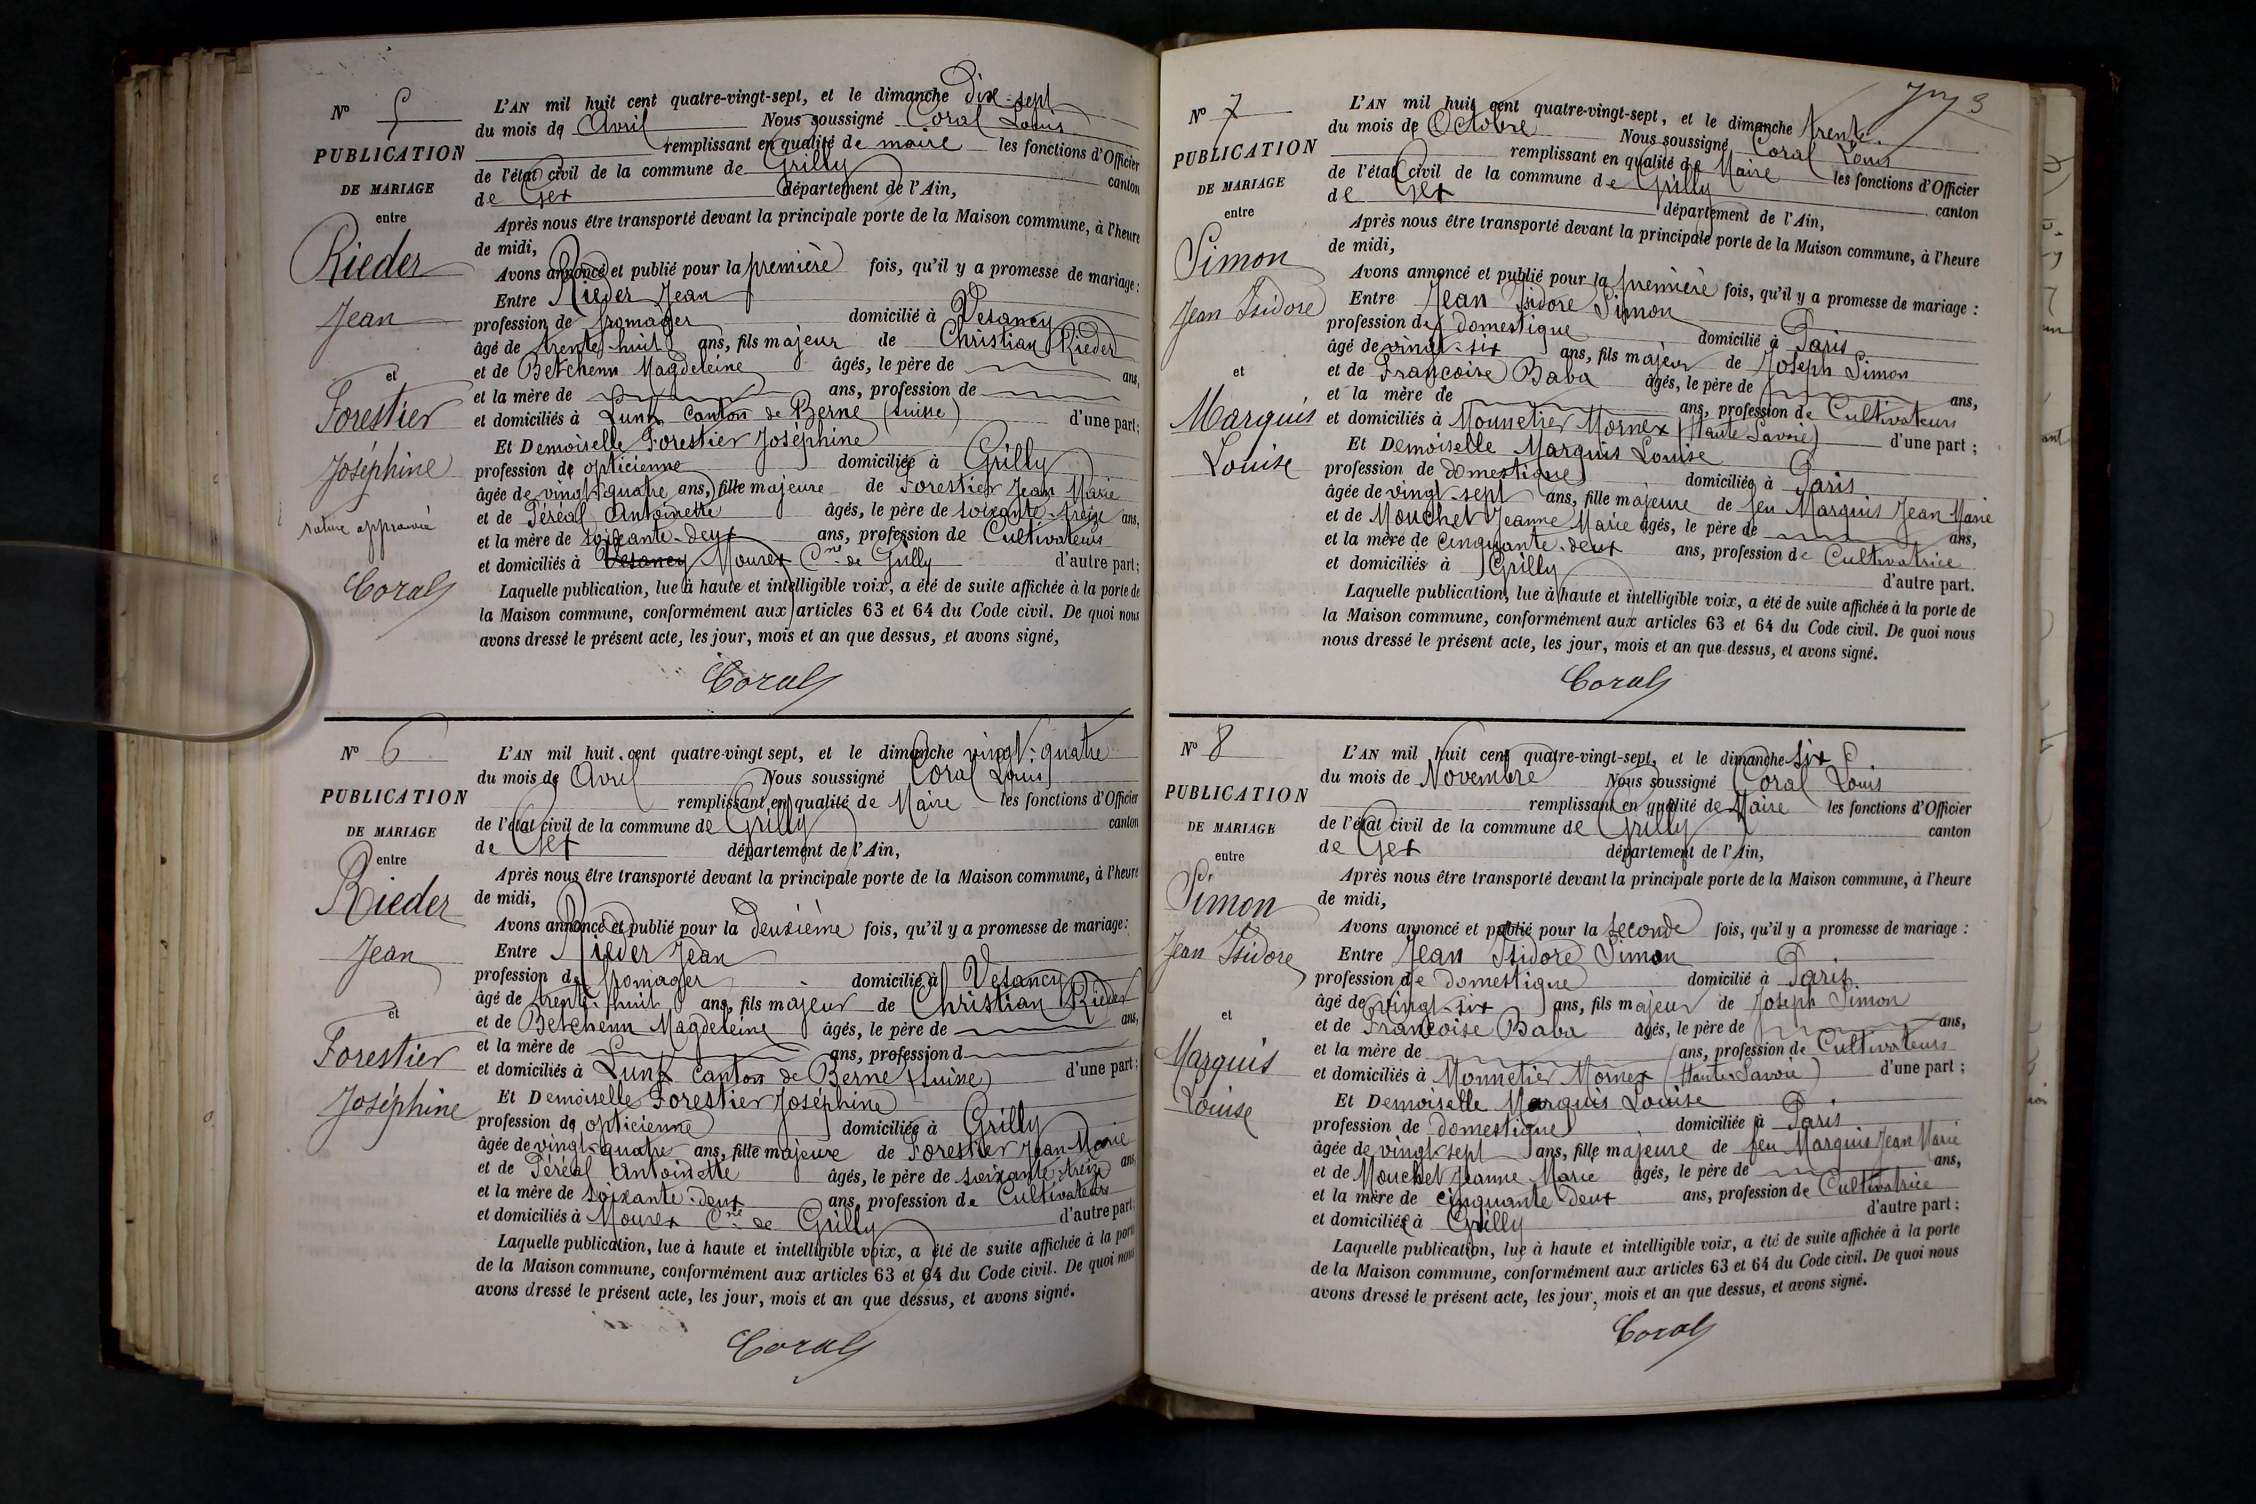 N° 5
PUBLICATION
DE MARIAGE
entre
Rieder
Jean
et
Forestier
Joséphine
rature approuvée
Coral
L'AN mil huit cent quatre-vingt-sept, et le dimanche Dix-sept
du mois de Avril Nous soussigné Coral Louis
remplissant en qualité de maire les fonctions d'Officier
de l'état civil de la commune de Grilly canton
de Gex département de l'Ain,
Après nous être transporté devant la principale porte de la Maison commune, à l'heure
de midi,
Avons annoncé et publié pour la première fois, qu'il y a promesse de mariage :
Entre Rieder Jean
profession de fromager domicilié à Vesancy
âgé de trente-huit ans, fils majeur de Christian Rieder
et de Betchenn Magdeleine âgés, le père de ans,
et la mère de ans, profession de
et domiciliés à Lunk canton de Berne (Suisse) d'une part ;
Et Demoiselle Forestier Joséphine
profession de opticienne domiciliée à Grilly
âgée de vingt-quatre ans, fille majeure de Forestier Jean Marie
et de Péréal Antoinette âgés, le père de soixante-treize ans,
et la mère de soixante-deux ans, profession de Cultivateurs
et domiciliés à Vesancy Mourex Cne de Grilly d'autre part ;
Laquelle publication, lue à haute et intelligible voix, a été de suite affichée à la porte de
la Maison commune, conformément aux articles 63 et 64 du Code civil. De quoi nous
avons dressé le présent acte, les jour, mois et an que dessus, et avons signé,
Coral
N° 6
PUBLICATION
DE MARIAGE
entre
Rieder
Jean
et
Forestier
Joséphine
L'AN mil huit cent quatre-vingt sept, et le dimanche vingt-quatre
du mois de Avril Nous soussigné Coral Louis
remplissant en qualité de Maire les fonctions d'Officier
de l'état civil de la commune de Grilly canton
de Gex département de l'Ain,
Après nous être transporté devant la principale porte de la Maison commune, à l'heure
de midi,
Avons annoncé et publié pour la deuxième fois, qu'il y a promesse de mariage :
Entre Rieder Jean
profession de fromager domicilié à Vesancy
âgé de trente-huit ans, fils majeur de Christian Rieder
et de Betchenn Magdeleine âgés, le père de ans,
et la mère de ans, profession d
et domiciliés à Lunk canton de Berne (Suisse) d'une part ;
Et Demoiselle Forestier Joséphine
profession de opticienne domiciliée à Grilly
âgée de vingt-quatre ans, fille majeure de Forestier Jean Marie
et de Péréal Antoinette âgés, le père de soixante-treize ans
et la mère de soixante-deux ans, profession de Cultivateurs
et domiciliés à Mourex Cne de Grilly d'autre part,
Laquelle publication, lue à haute et intelligible voix, a été de suite affichée à la porte
de la Maison commune, conformément aux articles 63 et 64 du Code civil. De quoi nous
avons dressé le présent acte, les jour, mois et an que dessus, et avons signé.
Coral
3
N° 7
PUBLICATION
DE MARIAGE
entre
Simon
Jean Isidore
et
Marquis
Louise
L'AN mil huit cent quatre-vingt-sept, et le dimanche trente
du mois de Octobre Nous soussigné Coral Louis
remplissant en qualité de Maire les fonctions d'Officier
de l'état civil de la commune de Grilly canton
de Gex département de l'Ain,
Après nous être transporté devant la principale porte de la Maison commune, à l'heure
de midi,
Avons annoncé et publié pour la première fois, qu'il y a promesse de mariage :
Entre Jean Isidore Simon
profession de domestique domicilié à Paris
âgé de vingt-six ans, fils majeur de Joseph Simon
et de Françoise Baba âgés, le père de ans,
et la mère de ans, profession de Cultivateurs
et domiciliés à Monnetier Mornex (Haute Savoie) d'une part ;
Et Demoiselle Marquis Louise
profession de domestique domiciliée à Paris
âgée de vingt-sept ans, fille majeure de feu Marquis Jean Marie
et de Mouchet Jeanne Marie âgés, le père de ans,
et la mère de cinquante-deux ans, profession de Cultivatrice
et domiciliés à Grilly d'autre part.
Laquelle publication, lue à haute et intelligible voix, a été de suite affichée à la porte de
la Maison commune, conformément aux articles 63 et 64 du Code civil. De quoi nous
nous dressé le présent acte, les jour, mois et an que dessus, et avons signé.
Coral
N° 8
PUBLICATION
DE MARIAGE
entre
Simon
Jean Isidore
et
Marquis
Louise
L'AN mil huit cent quatre-vingt-sept, et le dimanche six
du mois de Novembre Nous soussigné Coral Louis
remplissant en qualité de Maire les fonctions d'Officier
de l'état civil de la commune de Grilly canton
de Gex département de l'Ain,
Après nous être transporté devant la principale porte de la Maison commune, à l'heure
de midi,
Avons annoncé et publié pour la seconde fois, qu'il y a promesse de mariage :
Entre Jean Isidore Simon
profession de domestique domicilié à Paris
âgé de vingt-six ans, fils majeur de Joseph Simon
et de Françoise Baba âgés, le père de ans,
et la mère de ans, profession de Cultivateurs
et domiciliés à Monnetier Mornex (Haute Savoie) d'une part ;
Et Demoiselle Marquis Louise
profession de domestique domiciliée à Paris
âgée de vingt-sept ans, fille majeure de feu Marquis Jean Marie
et de Mouchet Jeanne Marie âgés, le père de ans,
et la mère de cinquante deux ans, profession de Cultivatrice
et domiciliés à Grilly d'autre part ;
Laquelle publication, lue à haute et intelligible voix, a été de suite affichée à la porte
de la Maison commune, conformément aux articles 63 et 64 du Code civil. De quoi nous
avons dressé le présent acte, les jour, mois et an que dessus, et avons signé.
Coral